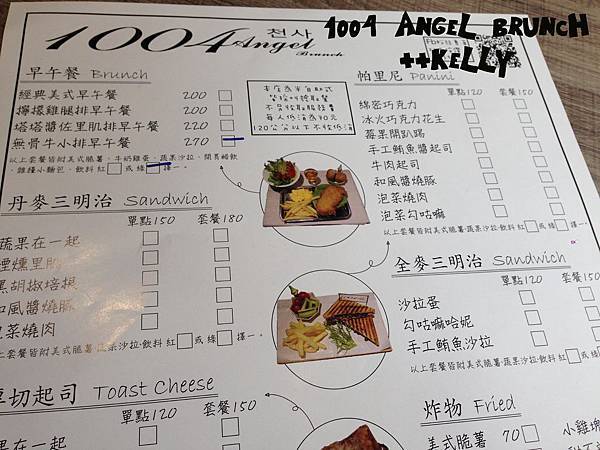 1004 Angel Brunch
천사
1004 ANGEL BRUNCH
++KELLY
早午餐 Brunch
經典美式早午餐 200
檸檬雞腿排早午餐 200
塔塔醬佐里肌排早午餐 220
無骨牛小排早午餐 270
以上套餐皆附美式脆薯、牛奶雞蛋、蔬果沙拉、
雜糧小麵包、飲料 紅 或 綠 擇一。
本店為半自助式
不另收取服務費
每人低消為90元
120公分以下不收低消
帕里尼 Panini
單點120 套餐150
綿密巧克力
冰火巧克力花生
莓果開趴踢
手工鮪魚醬起司
牛肉起司
和風醬燒豚
泡菜燒肉
泡菜勾咕嘛
以上套餐皆附美式脆薯、蔬果沙拉、飲料 紅 或 綠 擇一。
丹麥三明治 Sandwich
單點150 套餐180
蔬果在一起
煙燻里肌
黑胡椒培根
和風醬燒豚
泡菜燒肉
以上套餐皆附美式脆薯、蔬果沙拉、飲料 紅 或 綠 擇一。
全麥三明治 Sandwich
單點120 套餐150
沙拉蛋
勾咕嘛哈妮
手工鮪魚沙拉
以上套餐皆附美式脆薯、蔬果沙拉、飲料 紅 或
厚切起司 Toast Cheese
單點120 套餐150
果在一起
炸物 Fried
美式脆薯 70
小雞塊